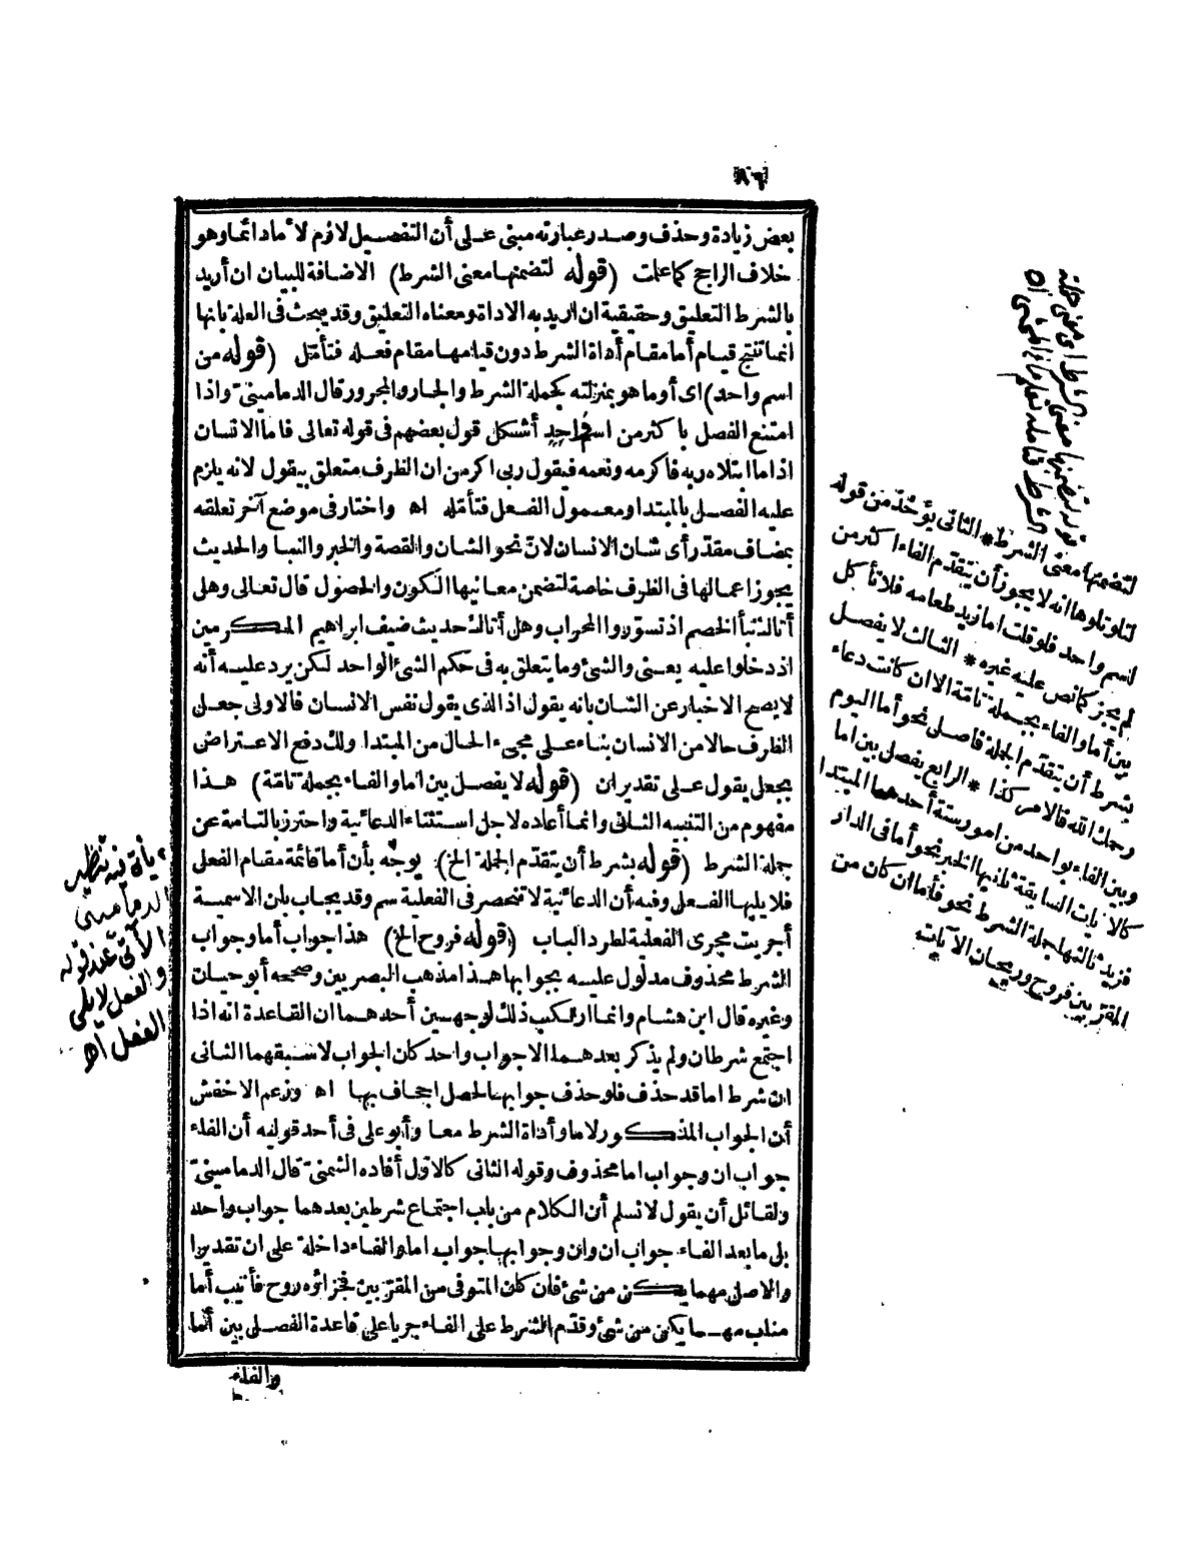 بعض زيادة وحذف وصدر عبارته مبنى على أن التفصيل لازم لأما دائما وهو
خلاف الراجح كما علمت (قوله لتضمنها معنى الشرط) الاضافة للبيان ان أريد
بالشرط التعليق وحقيقية ان اريد به الاداة ومعناه التعليق وقد يبحث فى العلة بانها
انما تنتج قيام أما مقام أداة الشرط دون قيامها مقام فعله فتأمّل (قوله من
اسم واحد) اى أو ما هو بمنزلته كجملة الشرط والجار والمجرور قال الدمامينىّ واذا
امتنع الفصل باكثر من اسم واحد أشكل قول بعضهم فى قوله تعالى فاما الانسان
اذا ما ابتلاه ربه فاكرمه ونعمه فيقول ربى اكرمن ان الظرف متعلق بيقول لانه يلزم
عليه الفصل بالمبتدا ومعمول الفعل فتأمّله اه واختار فى موضع آخر تعلقه
بمضاف مقدّر أى شان الانسان لانّ نحو الشان والقصة والخبر والنبا والحديث
يجوز اعمالها فى الظرف خاصة لتضمن معانيها الكون والحصول قال تعالى وهل
أتاك نبأ الخصم اذ تسوّروا المحراب وهل أتاك حديث ضيف ابراهيم المكرمين
اذ دخلوا عليه يعنى والشئ وما يتعلق به فى حكم الشئ الواحد لكن يرد عليه أنه
لا يصح الاخبار عن الشان بانه يقول اذ الذى يقول نفس الانسان فالاولى جعل
الظرف حالا من الانسان بناء على مجىء الحال من المبتدا ولك دفع الاعتراض
بجعل يقول على تقدير ان (قوله لا يفصل بين اما والفاء بجملة تامّة) هذا
مفهوم من التنبيه الثانى وانما أعاده لاجل استثناء الدعائية واحترز بالتامة عن
جملة الشرط (قوله بشرط أن يتقدّم الجملة الخ) يوجّه بأن أما قائمة مقام الفعلى
فلا يليها الفعل وفيه أن الدعائية لا تنحصر فى الفعلية سم وقد يجاب بان الاسمية
أجريت مجرى الفعلية لطرد الباب (قوله فروح الخ) هذا جواب أما وجواب
الشرط محذوف مدلول عليه بجوابها هذا مذهب البصريين وصححه أبو حيان
وغيره قال ابن هشام وانما ارتكب ذلك لوجهين أحدهما ان القاعدة انه اذا
اجتمع شرطان ولم يذكر بعدهما الا جواب واحد كان الجواب لاسبقهما الثانى
ان شرط اما قد حذف فلو حذف جوابها لحصل اجحاف بها اه وزعم الاخفش
أن الجواب المذكور لاما وأداة الشرط معا وأبو على فى أحد قوليه أن الفاء
جواب ان وجواب اما محذوف وقوله الثانى كالاوّل أفاده الشمنىّ قال الدمامينىّ
ولقائل أن يقول لا نسلم أن الكلام من باب اجتماع شرطين بعدهما جواب واحد
بل ما بعد الفاء جواب ان وان وجوابها جواب اما والفاء داخلة على ان تقديرا
والاصل مهما يكن من شئ فان كان المتوفى من المقرّبين فجزاؤه روح فأنيب أما
مناب مهما يكن من شئ وقدّم الشرط على الفاء جريا على قاعدة الفصل بين أما
والفاء
قوله لتضمنها معنى الشرط اى معنى جملة
لتضمنها معنى الشرط * الثانى يؤخذ من قوله
لتلو تلوها انه لا يجوز أن يتقدّم الفاء اكثر من
اسم واحد فلو قلت اما زيد طعامه فلا تأكل
لم يجز كما نص عليه غيره * الثالث لا يفصل
بين أما والفاء بجملة تامّة الا ان كانت دعاء
بشرط أن يتقدّم الجملة فاصل نحو أما اليوم
رحمك الله فالامر كذا * الرابع يفصل بين اما
وبين الفاء بواحد من امور ستة أحدها المبتدا
كالآيات السابقة ثانيها الخبر نحو أما فى الدار
فزيد ثالثها جملة الشرط نحو فأما ان كان من
المقرّبين فروح وريحان الآيات
يأتى فيه تنظير
الدمامينى
الآتى عند قوله
والفعل لا يلى
الفعل اه